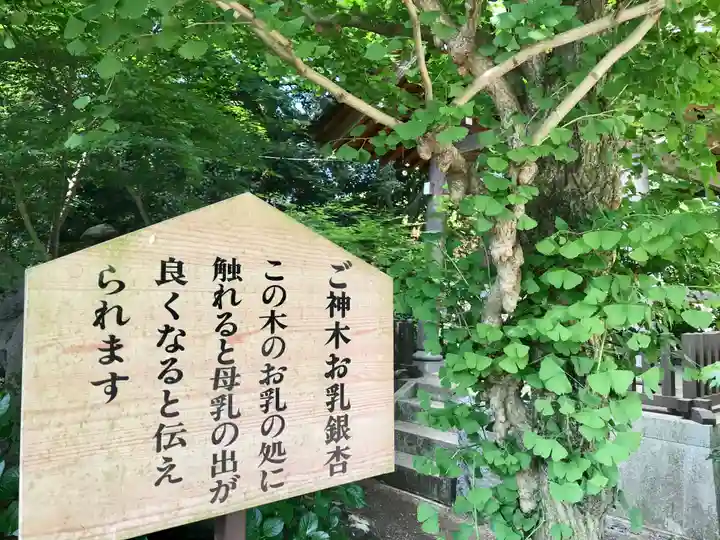 ご神木お乳銀杏
この木のお乳の処に
触れると母乳の出が
良くなると伝え
られます